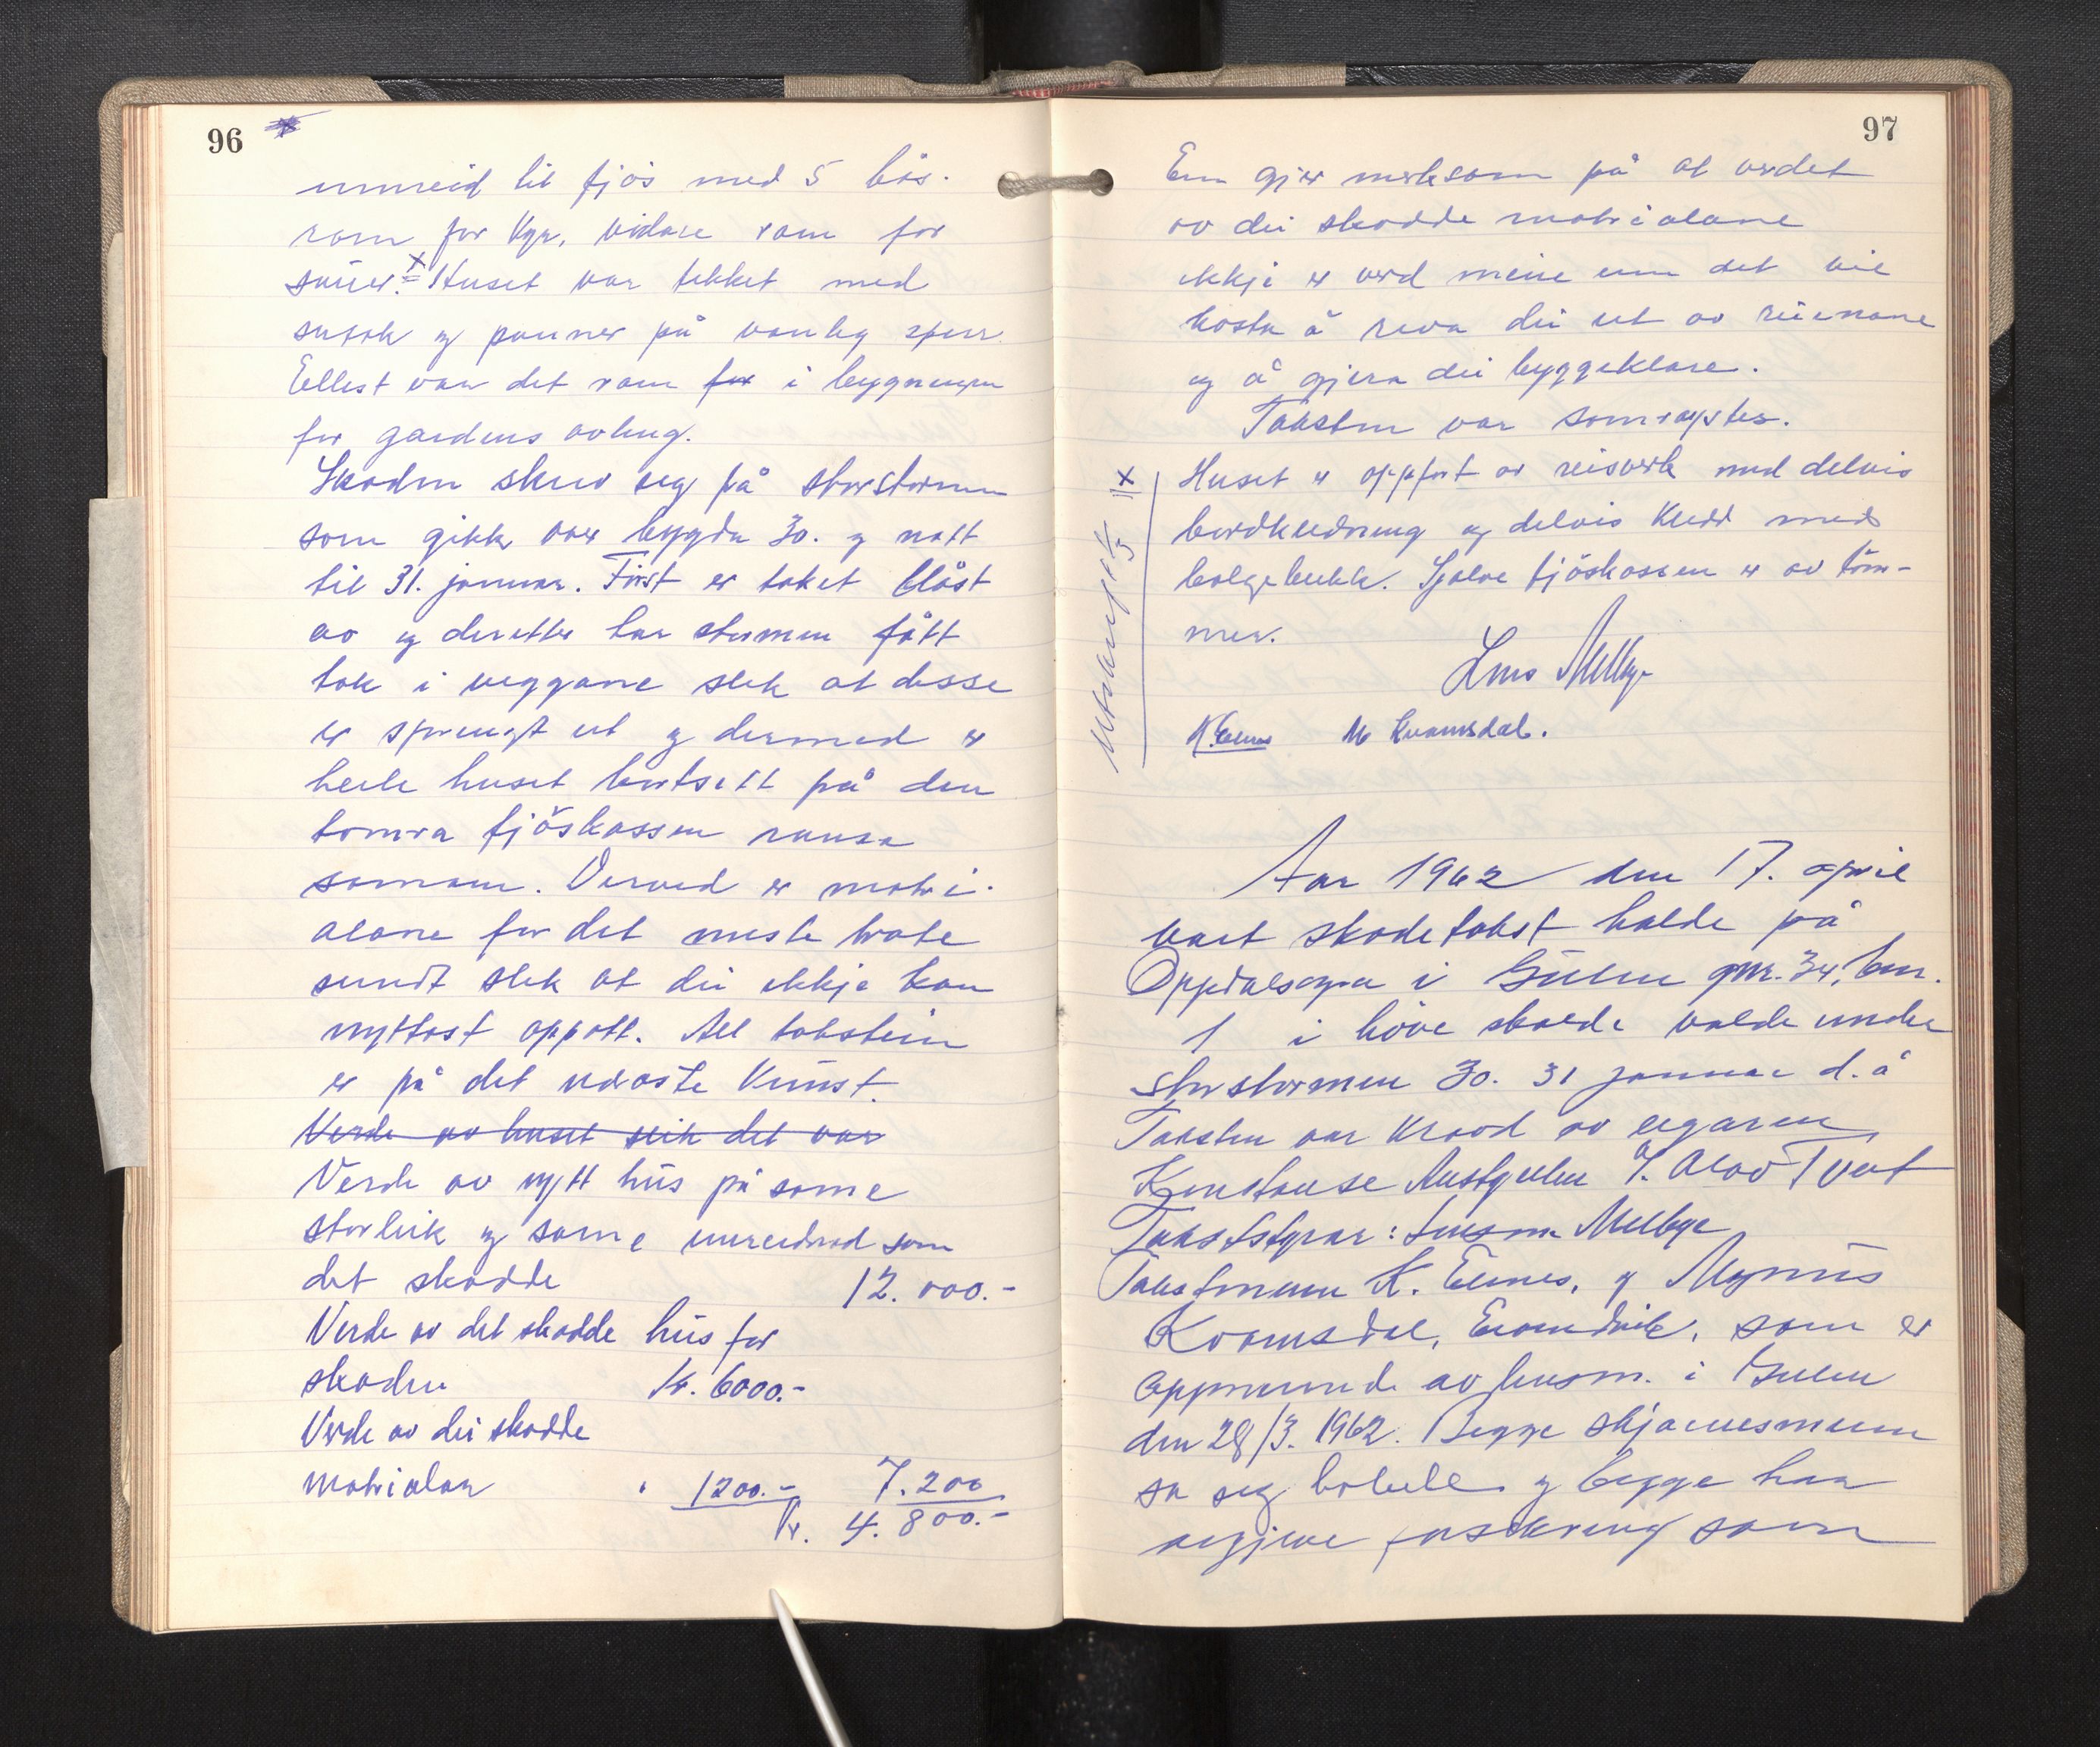 96
innreid til fjøs med 5 bås-
rom for kyr, vidare rom for
sauer. x Huset var tekket med
sutak og panner på vanleg sperr.
Ellest var det rom for i bygningen
for gardens avling.
Skaden skriv seg på storstormen
som gikk over bygda 30. og natt
til 31. januar. Først er taket blåst
av og deretter har stormen fått
tak i veggane slik at desse
er sprengt ut og dermed er
heile huset bortsett på den
tomra fjøskassen rausa
saman. Derved er matri-
alane for det meste brote
sundt slik at dei ikkje kan
nyttast oppatt. All takstein
er på det næraste knust.
Verde av huset slik det var
Verde av nytt hus på same
storleik og same innreidnad som
det skadde 12.000.-
Verde av det skadde hus før
skaden kr. 6000.-
Verde av dei skadde
matrialar " 1200.- 7.200
kr. 4.800.-
97
Ein gjer merksam på at verdet
av dei skadde matrialane
ikkje er verd meire enn det vil
kosta å riva dei ut av ruinane
og å gjera dei byggeklare.
Taksten var samrøystes.
x Huset er oppført av reisverk med delvis
bordkledning og delvis kledd med
bølgeblekk. Sjølve fjøskassen er av tøm-
mer.
Utskrift 1/5
Lars Melbye
K. Eines M Kvamsdal.
Aar 1962 den 17. april
vart skadetakst halde på
Oppdalsøyra i Gulen gnr. 34, bnr.
1 i høve skade valde under
storstormen 30. 31 januar d.å
Taksten var kravd av eigaren
Konstanse Austgulen v/ Olav Tveit
Takststyrar: lensm. Melbye
Takstmenn K. Eines, og Magnus
Kvamsdal, Eivindvik, som er
oppnemnde av lensm. i Gulen
den 28/3. 1962. Begge skjønnesmenn
sa seg habile og begge har
avgjeve forsikring som